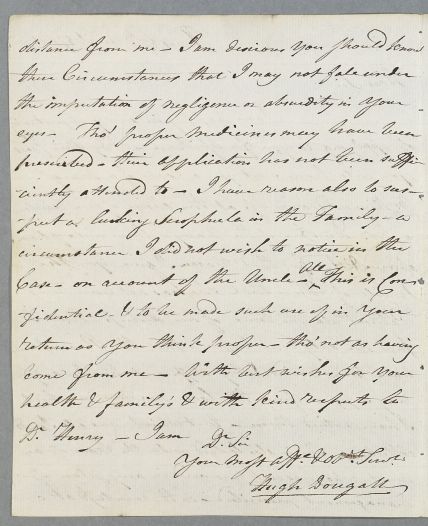 distance from me – I am desirous you should know
these Circumstances that I may not fall under
the imputation of negligence or absurdity in your
eyes – Tho' proper medicines may have been
prescribed – their application has not been suffi-
ciently attended to – I have reason also to sus-
-pect a lurking Scrophula in the Family – a
circumstance I did not wish to notice in the
Case – on account of the Uncle – All This is Con
fidential & to be made such use of in your
return as you think proper – tho' not as having
come from me – With best wishes for your
health & family's & with kind respects to
Dr. Henry – I am
Dr. Sir
Your most affe. & obt. Servt.
Hugh Dougall